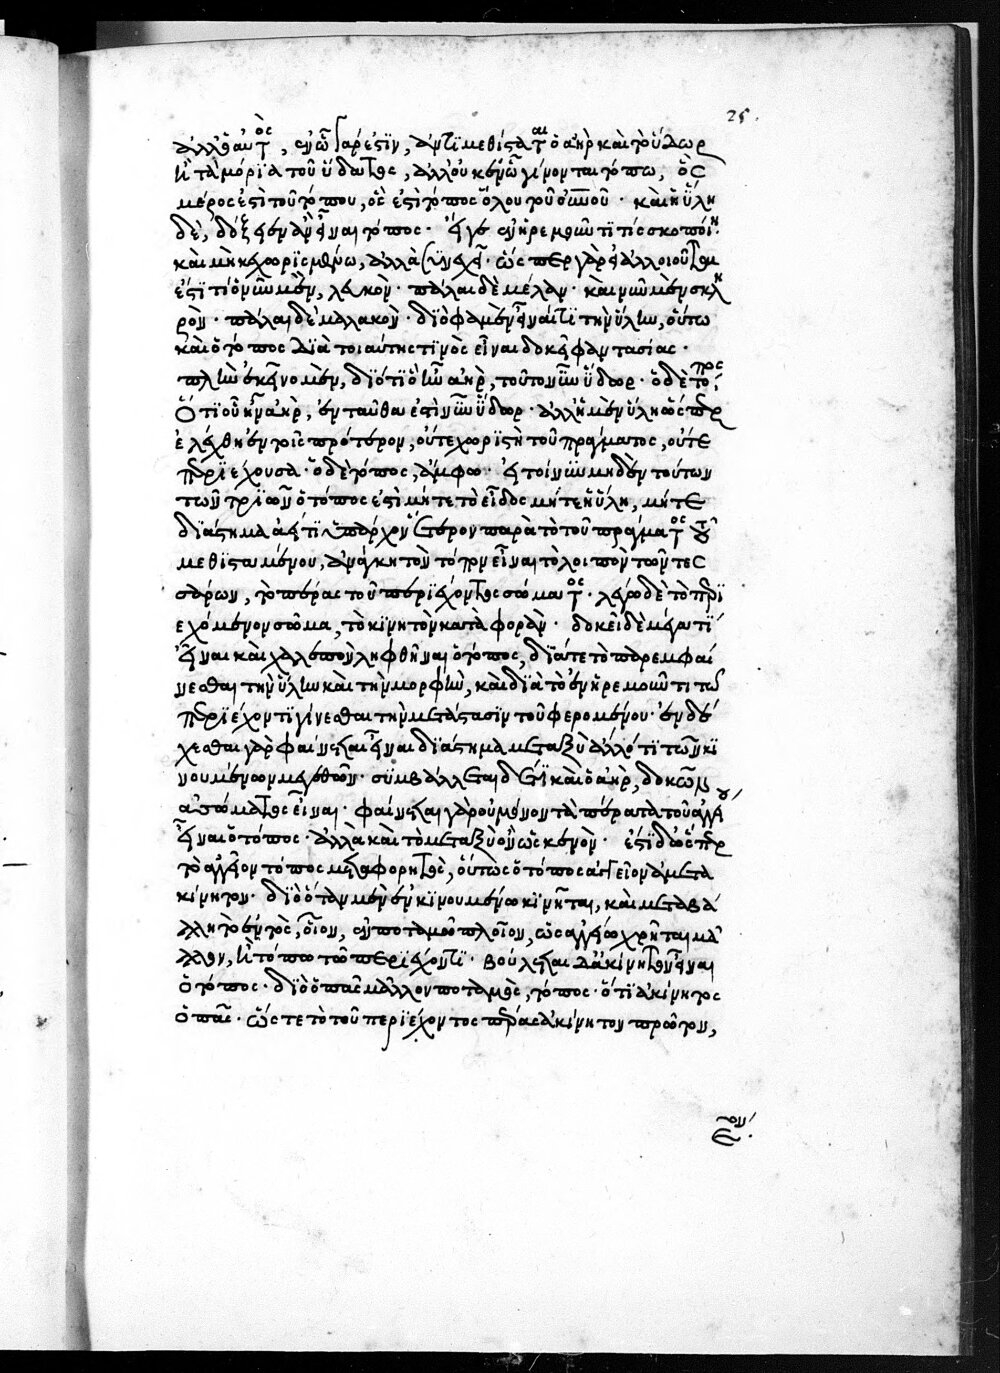 ἀλλ' ὁ αὐτὸς, ἐν ᾧ γάρ ἐστιν, ἀντιμεθίσταται ὁ ἀὴρ καὶ τὸ ὕδωρ
ἢ τὰ μόρια τοῦ ὕδατος, ἀλλ' οὐκ ἐν ᾧ γίνονται τόπω, ὃς
μέρος ἐστὶ τοῦ τόπου, ὅς ἐστι τόπος ὅλου τοῦ οὐνοῦ· καὶ ἡ ὕλη
δὲ, δόξειεν ἂν εἶναι τόπος· εἴ γε ἐν ἠρεμοῦντί τις σκοποίη·
καὶ μὴ κεχωρισμένω, ἀλλὰ συνεχεῖ· ὥσπερ γὰρ εἰ ἀλλοιοῦται
ἐστί τι ὃ νῦν μὲν, λευκὸν· πάλαι δὲ μέλαν· καὶ νῦν μὲν σκλη
ρὸν· πάλαι δὲ μαλακὸν· διὸ φαμὲν εἶναί τι τὴν ὕλην, οὕτω
καὶ ὁ τόπος διὰ τοιαύτης τινὸς εἶναι δοκεῖ φαντασίας·
πλὴν ἐκεῖνο μὲν, διότι ὃ ἦν ἀὴρ, τοῦτο νῦν ὕδωρ· ὁ δὲ τόπος,
ὅτι οὗ ἦν ἀὴρ, ἐνταῦθα ἐστὶ νῦν ὕδωρ· ἀλλ' ἡ μὲν ὕλη ὥσπερ
ἐλέχθη ἐν τοῖς πρότερον, οὔτε χωριστὴ τοῦ πράγματος, οὔτε
περιέχουσα· ὁ δὲ τόπος, ἄμφω· εἰ τοίνυν μηδὲν τούτων
τῶν τριῶν ὁ τόπος ἐστὶ μήτε τὸ εἶδος μήτε ἡ ὕλη, μήτε
διάστημα ἀεί τι ὑπάρχον ἕτερον παρὰ τὸ τοῦ πράγματος τοῦ
μεθισταμένου, ἀνάγκη τὸν τόπον εἶναι τὸ λοιπὸν τῶν τεσ
σάρων, τὸ πέρας τοῦ περιέχοντος σώματος· λέγω δὲ τὸ περι
εχόμενον σῶμα, τὸ κινητὸν κατὰ φορὰν· δοκεῖ δὲ μέγα τι
εἶναι καὶ χαλεπὸν ληφθῆναι ὁ τόπος, διά τε τὸ παρεμφαί
νεσθαι τὴν ὕλην καὶ τὴν μορφὴν, καὶ διὰ τὸ ἐν ἠρεμοῦντι τῶ
περιέχοντι γίνεσθαι τὴν μετάστασιν τοῦ φερομένου· ἐνδέ
χεσθαι γὰρ φαίνεται εἶναι διάστημα μεταξὺ ἄλλό τι τῶν κι
νουμένων μεγεθῶν· συμβάλλεται δέ τι καὶ ὁ ἀὴρ, δοκῶν
ἀσώματος εἶναι· φαίνεται γὰρ οὐ μόνον τὰ πέρατα τοῦ ἀγγείου
εἶναι ὁ τόπος· ἀλλὰ καὶ τὸ μεταξὺ ὂν ὡς κενὸν· ἔστι δ' ὥσπερ
τὸ ἀγγεῖον τόπος μεταφορητὸς, οὕτως ὁ τόπος ἀγγεῖον ἀμετα
κίνητον· διὸ ὅταν μὲν ἐν κινουμένω κινῆται, καὶ μεταβά
λλη τὸ ἐντὸς, οἷον, ἐν ποταμῶ πλοῖον, ὡς ἀγγείω χρῆται μᾶ
λλον, ἢ τόπω τῶ περιέχοντι· βούλεται δ' ἀκίνητος εἶναι
ὁ τόπος· διὸ ὁ πᾶς μᾶλλον ποταμὸς, τόπος· ὅτι ἀκίνητος
ὁ πᾶς· ὥστε τὸ τοῦ περιέχοντος πέρας ἀκίνητον πρῶτον,